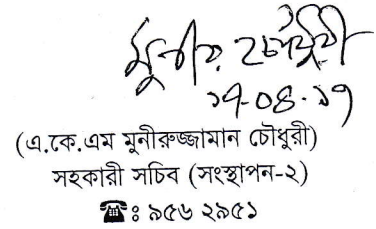 মুনীর চৌধুরী
১৭-০৪-১৭
(এ.কে.এম মুনীরুজ্জামান চৌধুরী)
সহকারী সচিব (সংস্থাপন-২)
☎ : ৯৫৬ ২৯৫১